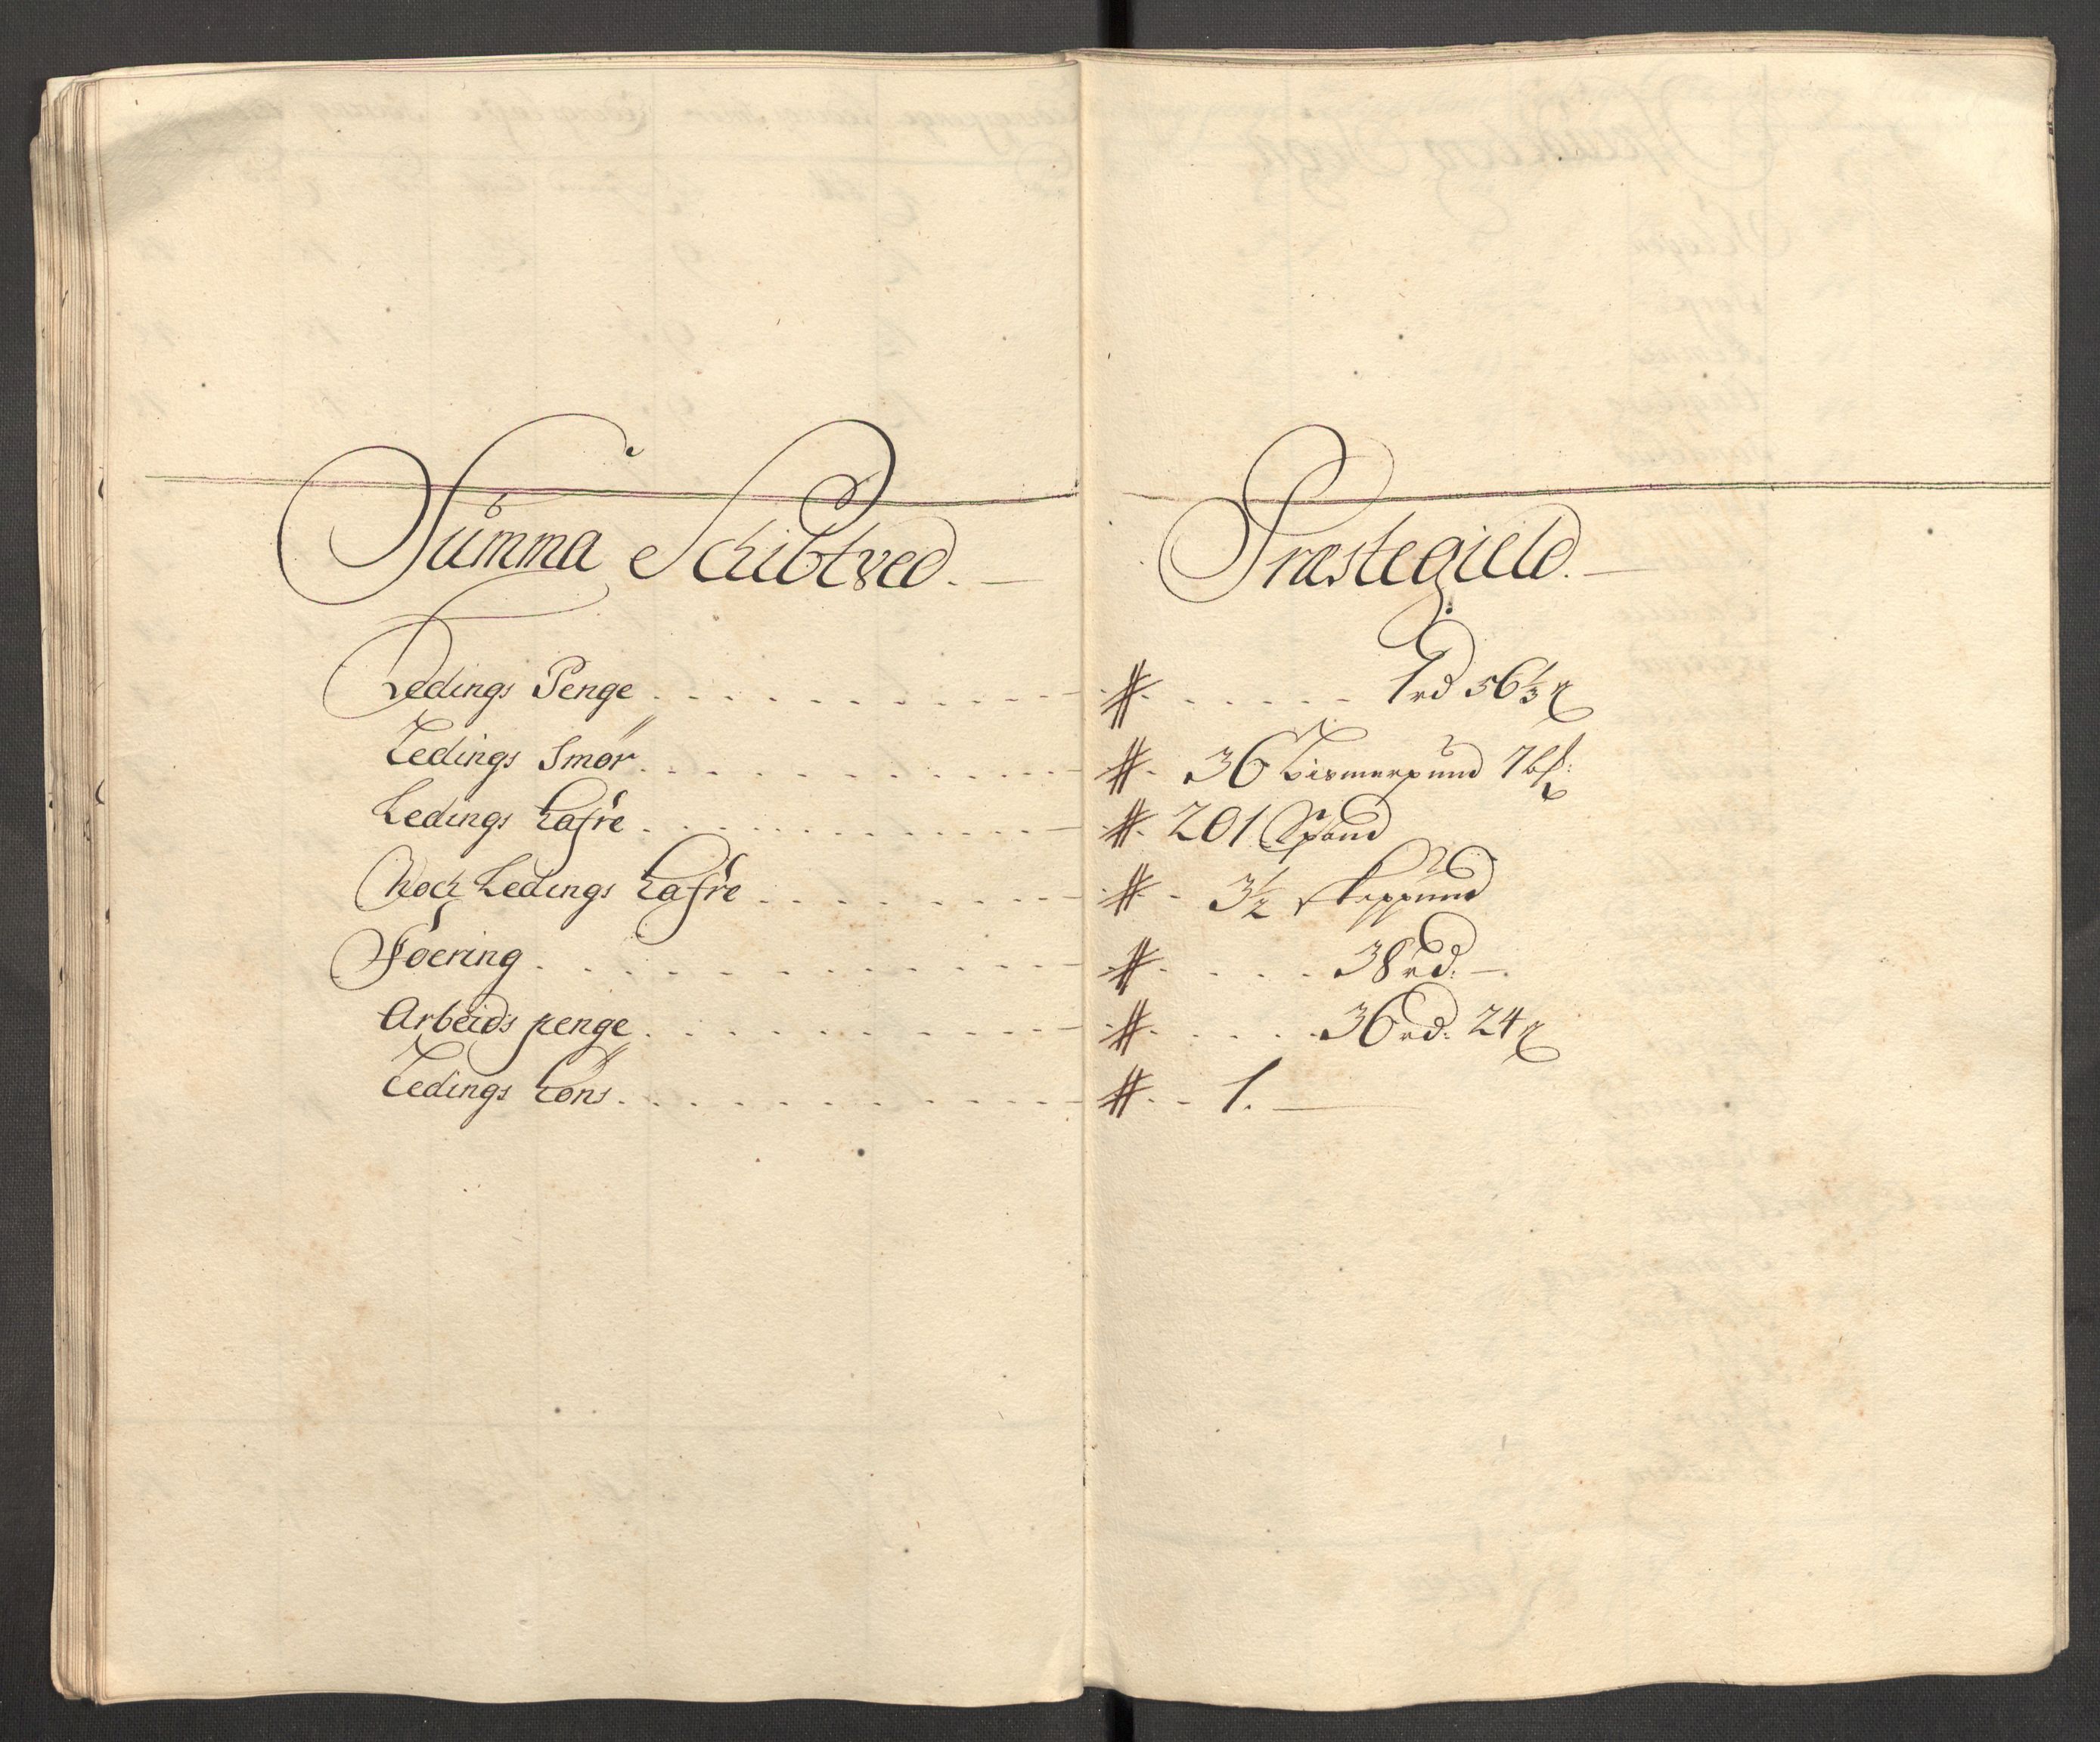 Summa Schibtved. — Præstegield. —
Ledings Penge . . . # . . . 1 rd 56 1/3 ß
Ledings Smör . . . # . 36 bismerpund 7 
Ledings hafre . . . # . 201 Spand
Noch Ledings hafre . . . # . 3 1/2 skeppund
Foering . . . # . . . 38 rd. —
Arbeids penge . . . # . . . 36 rd. 24 ß
Ledings höns . . . # . . 1. —